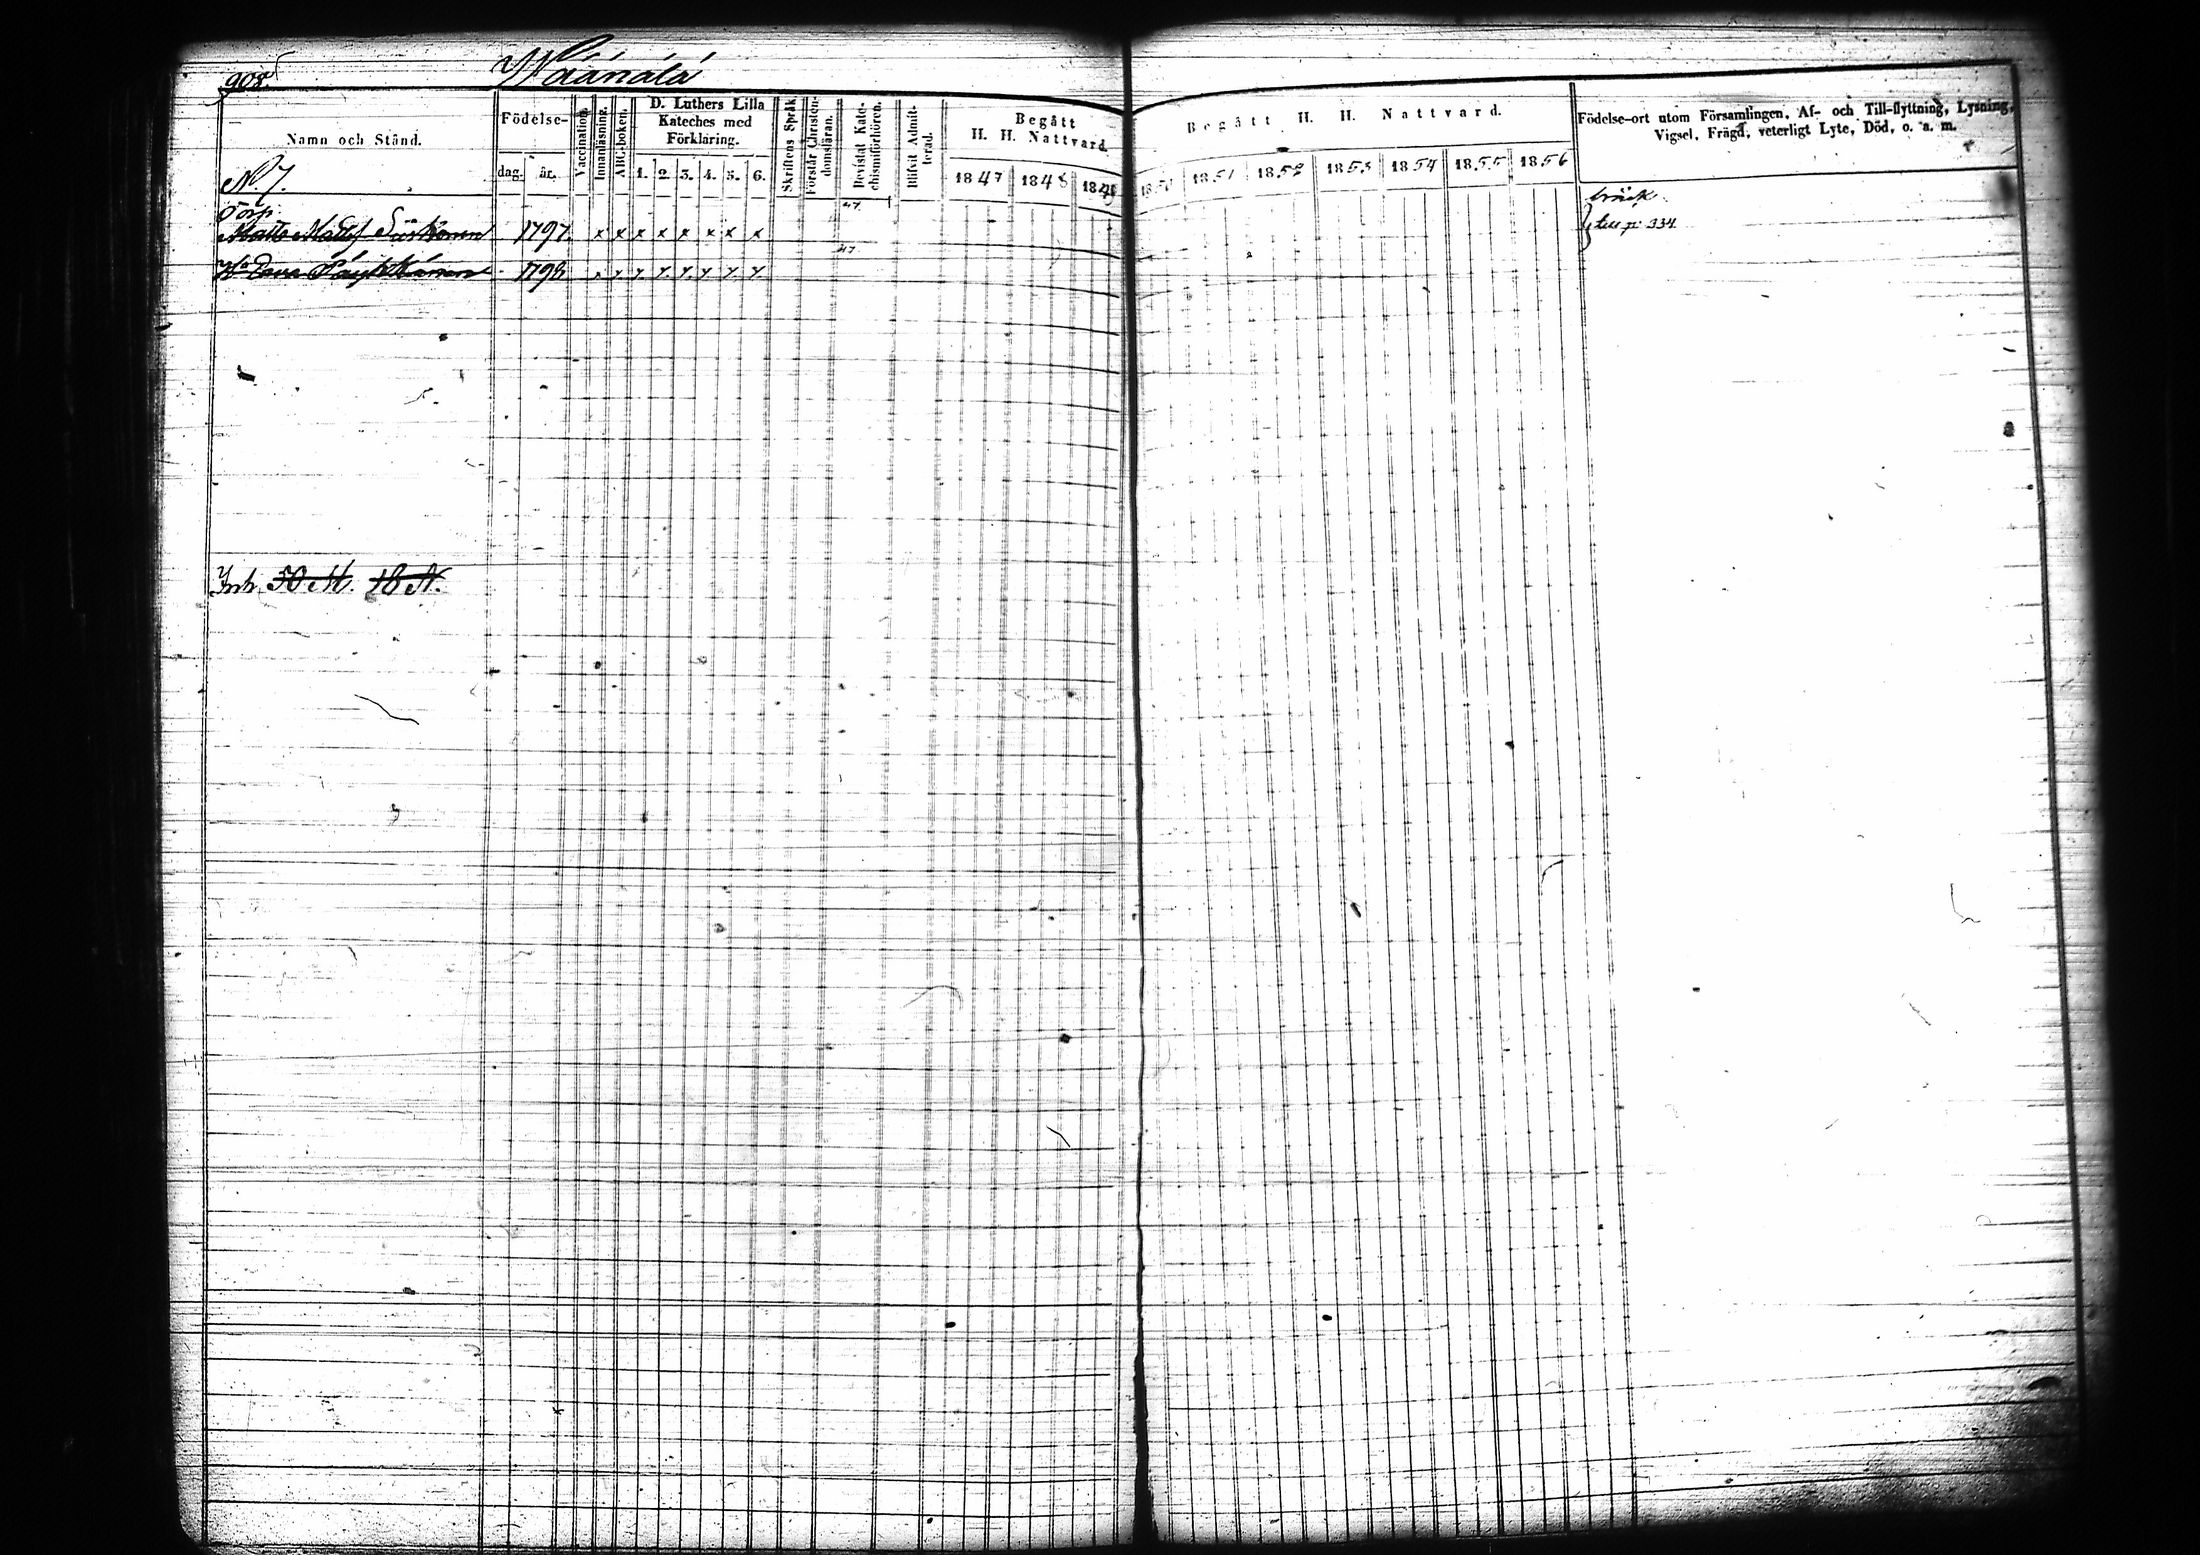 908.
Wäänälä
Namn och Stånd.
Födelse-
dag. år.
Vaccination.
Innanläsning.
ABC-boken.
D. Luthers Lilla
Kateches med
Förklaring.
1. 2. 3. 4. 5. 6.
Skriftens Språk.
Förstår Christen-
domsläran.
Bevistat Kate-
chismiförhören.
Blifvit Admit-
terad.
Begått
H. H. Nattvard.
1847 1848 1849
Begått H. H. Nattvard.
1850 1851 1852 1853 1854 1855 1856
Födelse-ort utom Församlingen, Af- och Till-flyttning, Lysning,
Vigsel, Frägd, veterligt Lyte, Död, o. a. m.
No 7.
Torp. 47 bräck
Matts Matts 1797. x x x x x x x x p: 334
47
1798 x x x x x x x x
Inh. 50 M. 18 N.